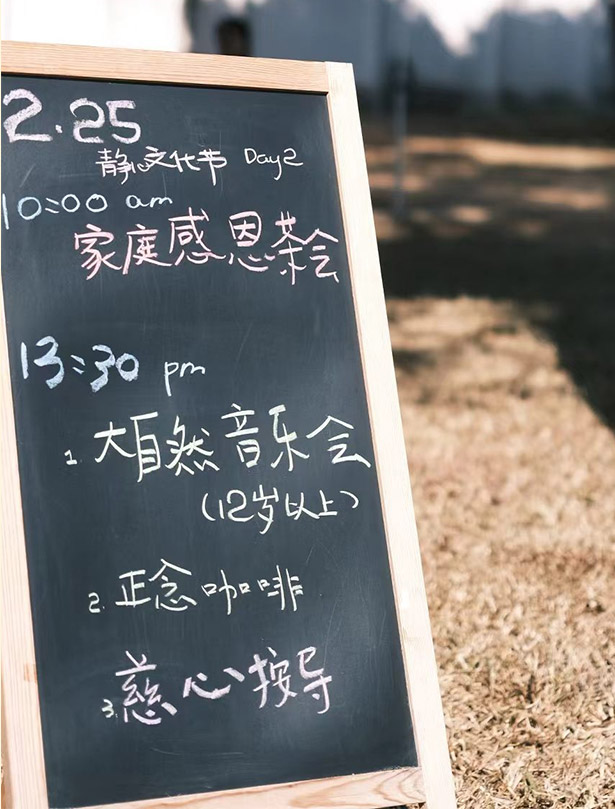 2.25
静心文化节 Day2
10:00 am
家庭感恩茶会
13:30 pm
1. 大自然音乐会
(12岁以上)
2. 正念咖啡
3. 慈心按导